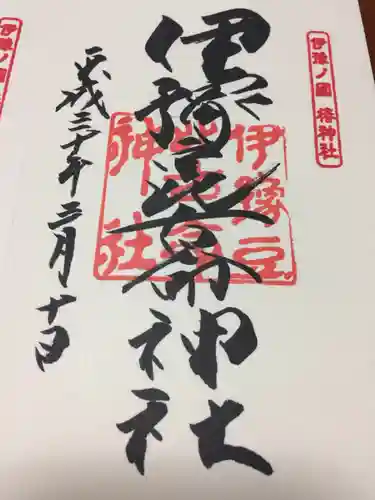 伊豫ノ國 椿神社
伊豫豆比古命神社
伊豫豆
比古命
神社
平成三十年三月十日